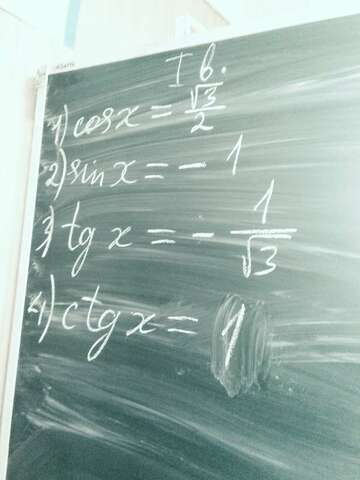 I в.
1) cos x = √3/2
2) sin x = - 1
3) tg x = - 1/√3
4) ctg x = 1